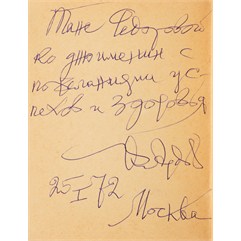 Тане Федоровой
ко дню именин с
пожеланиями ус-
пехов и здоровья
25 I 72
Москва